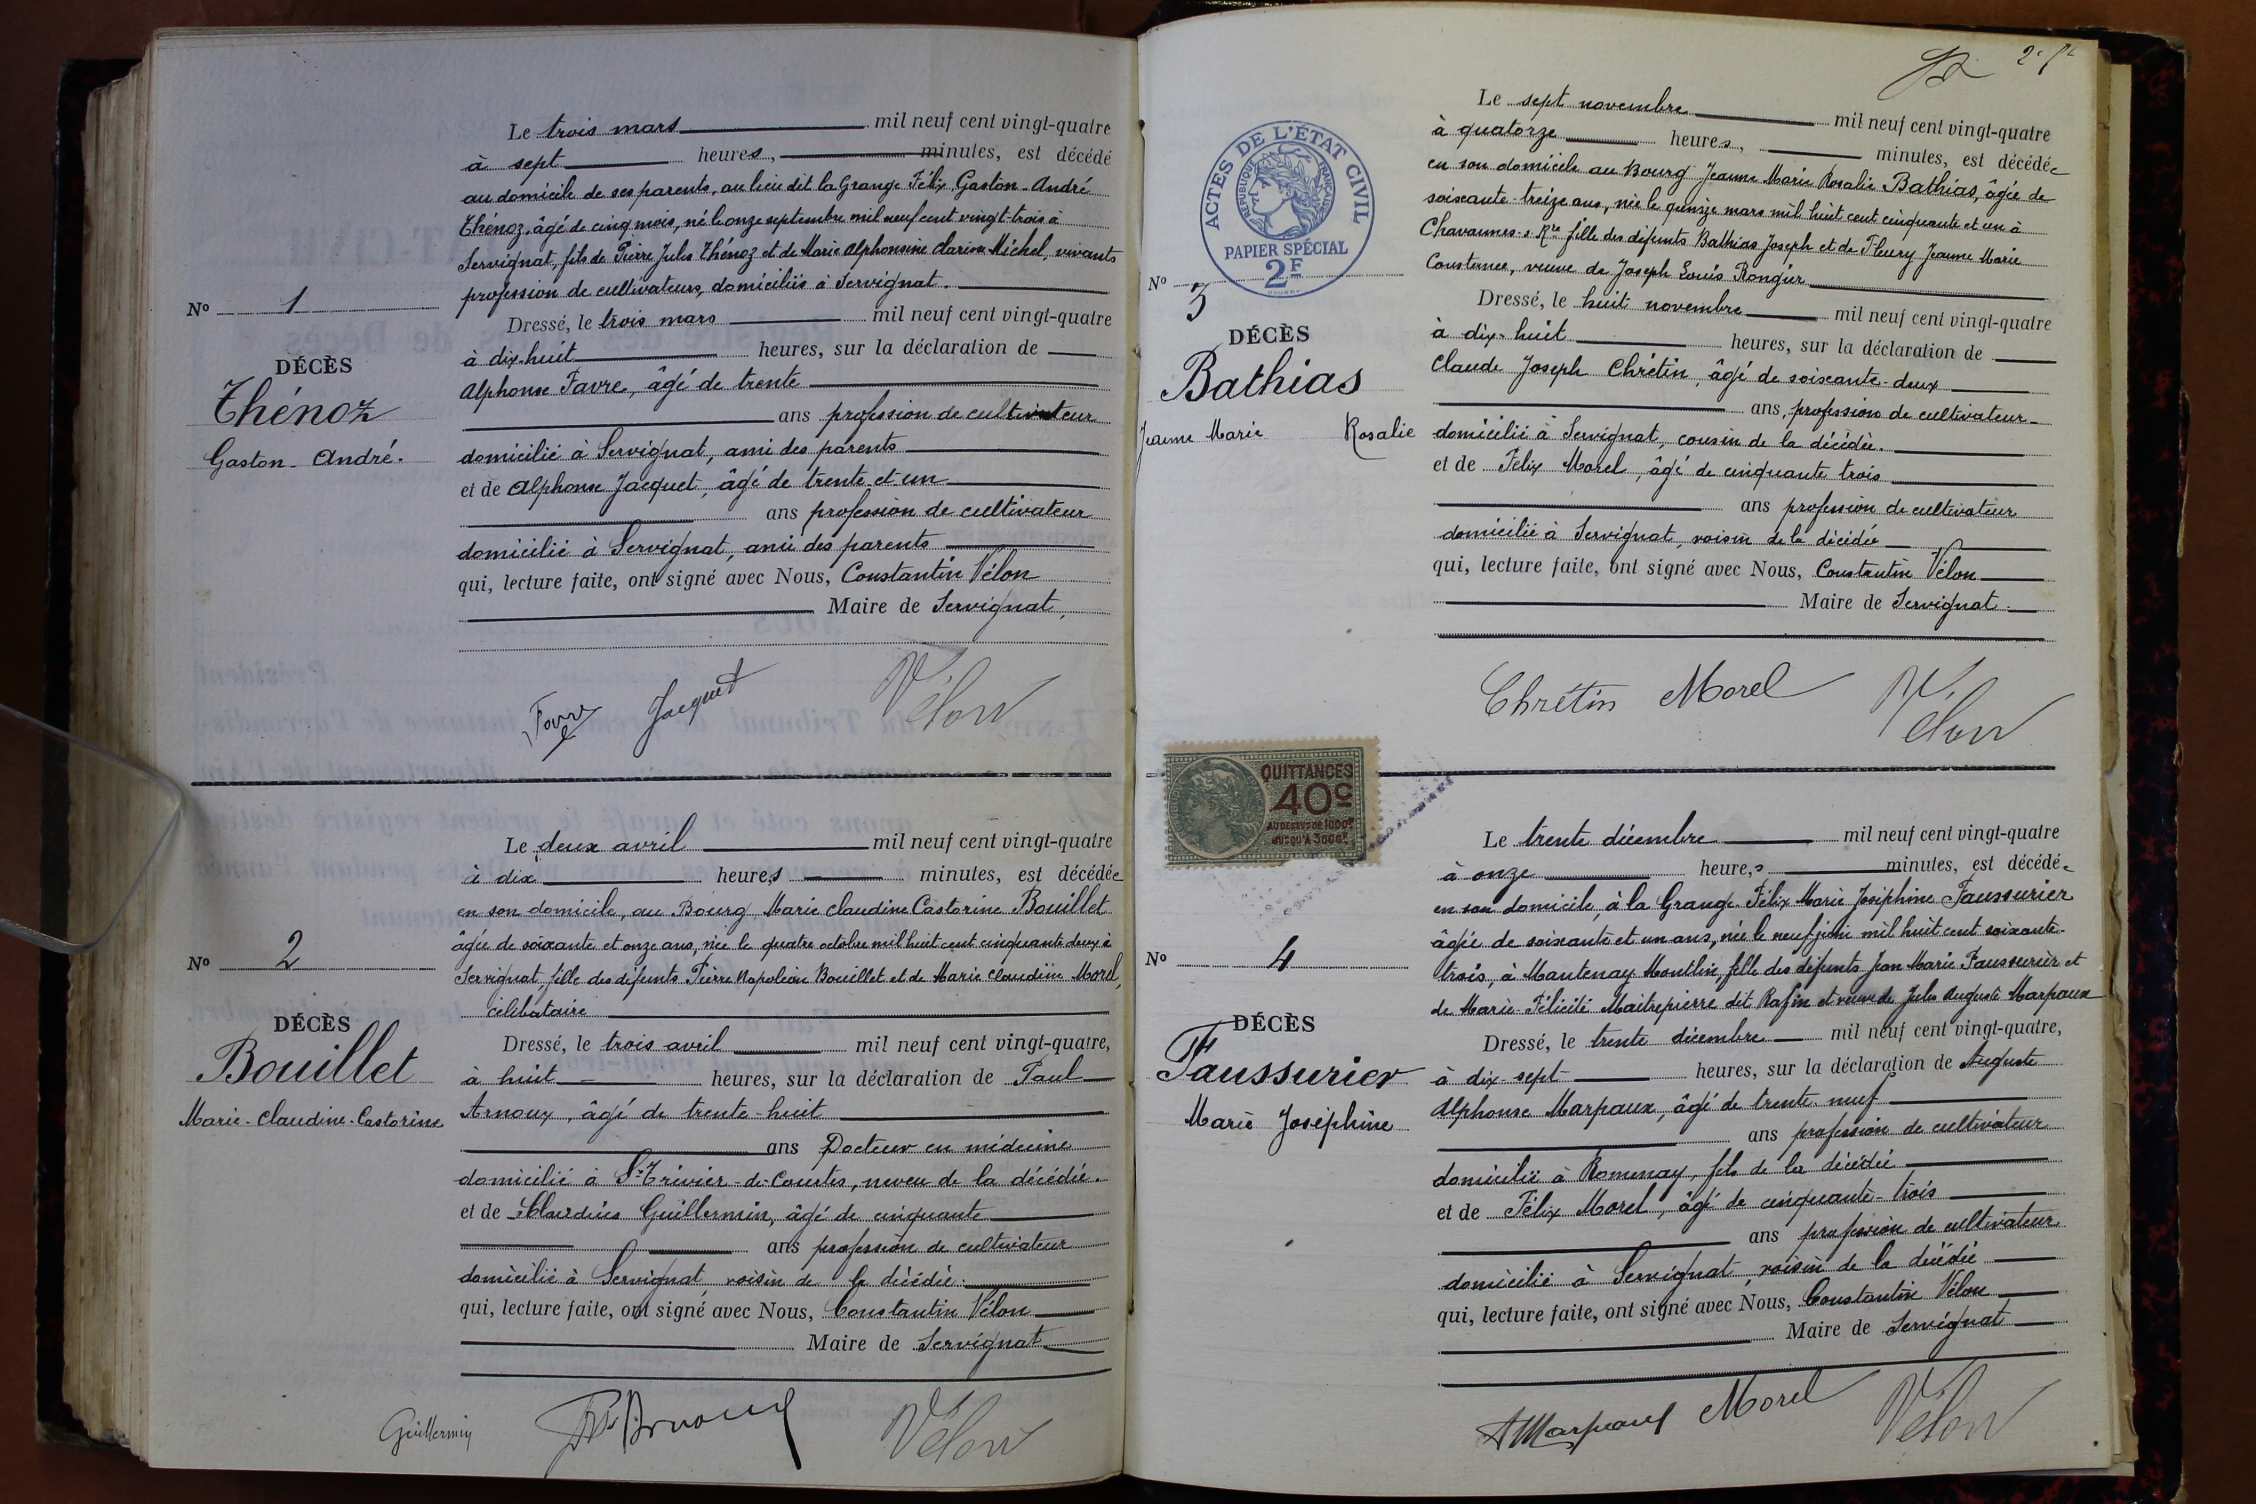 Le trois mars mil neuf cent vingt-quatre
à sept heures, minutes, est décédé
au domicile de ses parents, au lieu dit la Grange Félix, Gaston-André
Thénoz, âgé de cinq mois, né le onze septembre mil neuf cent vingt-trois à
Servignat, fils de Pierre Jules Thénoz et de Marie Alphonsine Clarisse Michel, vivants
profession de cultivateurs, domiciliés à Servignat.
Nº 1
DÉCÈS
Thénoz
Gaston-André.
Dressé, le trois mars mil neuf cent vingt-quatre
à dix-huit heures, sur la déclaration de
Alphonse Favre, âgé de trente
ans profession de cultivateur
domicilié à Servignat, ami des parents
et de Alphonse Jacquet, âgé de trente et un
ans profession de cultivateur
domicilié à Servignat, ami des parents
qui, lecture faite, ont signé avec Nous, Constantin Vélon
Maire de Servignat,
Favre Jacquet Vélon
Le deux avril mil neuf cent vingt-quatre
à dix heures minutes, est décédée
en son domicile, au Bourg Marie Claudine Castorine Bouillet
âgée de soixante et onze ans, née le quatre octobre mil huit cent cinquante deux à
Servignat, fille des défunts Pierre Napoléon Bouillet et de Marie Claudine Morel,
célibataire
Nº 2
DÉCÈS
Bouillet
Marie-Claudine-Castorine
Dressé, le trois avril mil neuf cent vingt-quatre,
à huit heures, sur la déclaration de Paul
Arnoux, âgé de trente-huit
ans Docteur en médecine
domicilié à St-Trivier-de-Courtes, neveu de la décédée.
et de Claudius Guillermin, âgé de cinquante
ans profession de cultivateur
domicilié à Servignat, voisin de la décédée.
qui, lecture faite, ont signé avec Nous, Constantin Vélon
Maire de Servignat
Guillermin Arnoux Vélon
Le sept novembre mil neuf cent vingt-quatre
à quatorze heures, minutes, est décédée
en son domicile au Bourg Jeanne Marie Rosalie Bathias, âgée de
soixante-treize ans, née le quinze mars mil huit cent cinquante et un à
Chavannes-s-Rze fille des défunts Bathias Joseph et de Fleury Jeanne Marie
Constance, veuve de Joseph Louis Rongier
ACTES DE L'ÉTAT CIVIL
RÉPUBLIQUE FRANÇAISE
PAPIER SPÉCIAL
2F
Nº 3
DÉCÈS
Bathias
Jeanne Marie Rosalie
Dressé, le huit novembre mil neuf cent vingt-quatre
à dix-huit heures, sur la déclaration de
Claude Joseph Chrétin, âgé de soixante-deux
ans, profession de cultivateur
domicilié à Servignat, cousin de la décédée.
et de Félix Morel, âgé de cinquante trois
ans profession de cultivateur
domicilié à Servignat, voisin de la décédée
qui, lecture faite, ont signé avec Nous, Constantin Vélon
Maire de Servignat.
Chrétin Morel Vélon
QUITTANCES
40c
AU DESSUS DE 1000F
JUSQU'A 3000F
Le trente décembre mil neuf cent vingt-quatre
à onze heures minutes, est décédée
en son domicile, à la Grange Félix Marie Joséphine Faussurier
âgée de soixante et un ans, née le neuf juin mil huit cent soixante-
trois, à Mantenay Montlin, fille des défunts Jean Marie Faussurier et
de Marie-Félicité Maitrepierre dit Rafin et veuve de Jules Auguste Marpaux
Nº 4
DÉCÈS
Faussurier
Marie Joséphine
Dressé, le trente décembre mil neuf cent vingt-quatre,
à dix-sept heures, sur la déclaration de Auguste
Alphonse Marpaux, âgé de trente-neuf
ans profession de cultivateur
domicilié à Romenay, fils de la décédée
et de Félix Morel, âgé de cinquante-trois
ans profession de cultivateur
domicilié à Servignat, voisin de la décédée
qui, lecture faite, ont signé avec Nous, Constantin Vélon
Maire de Servignat
AMarpaux Morel Vélon